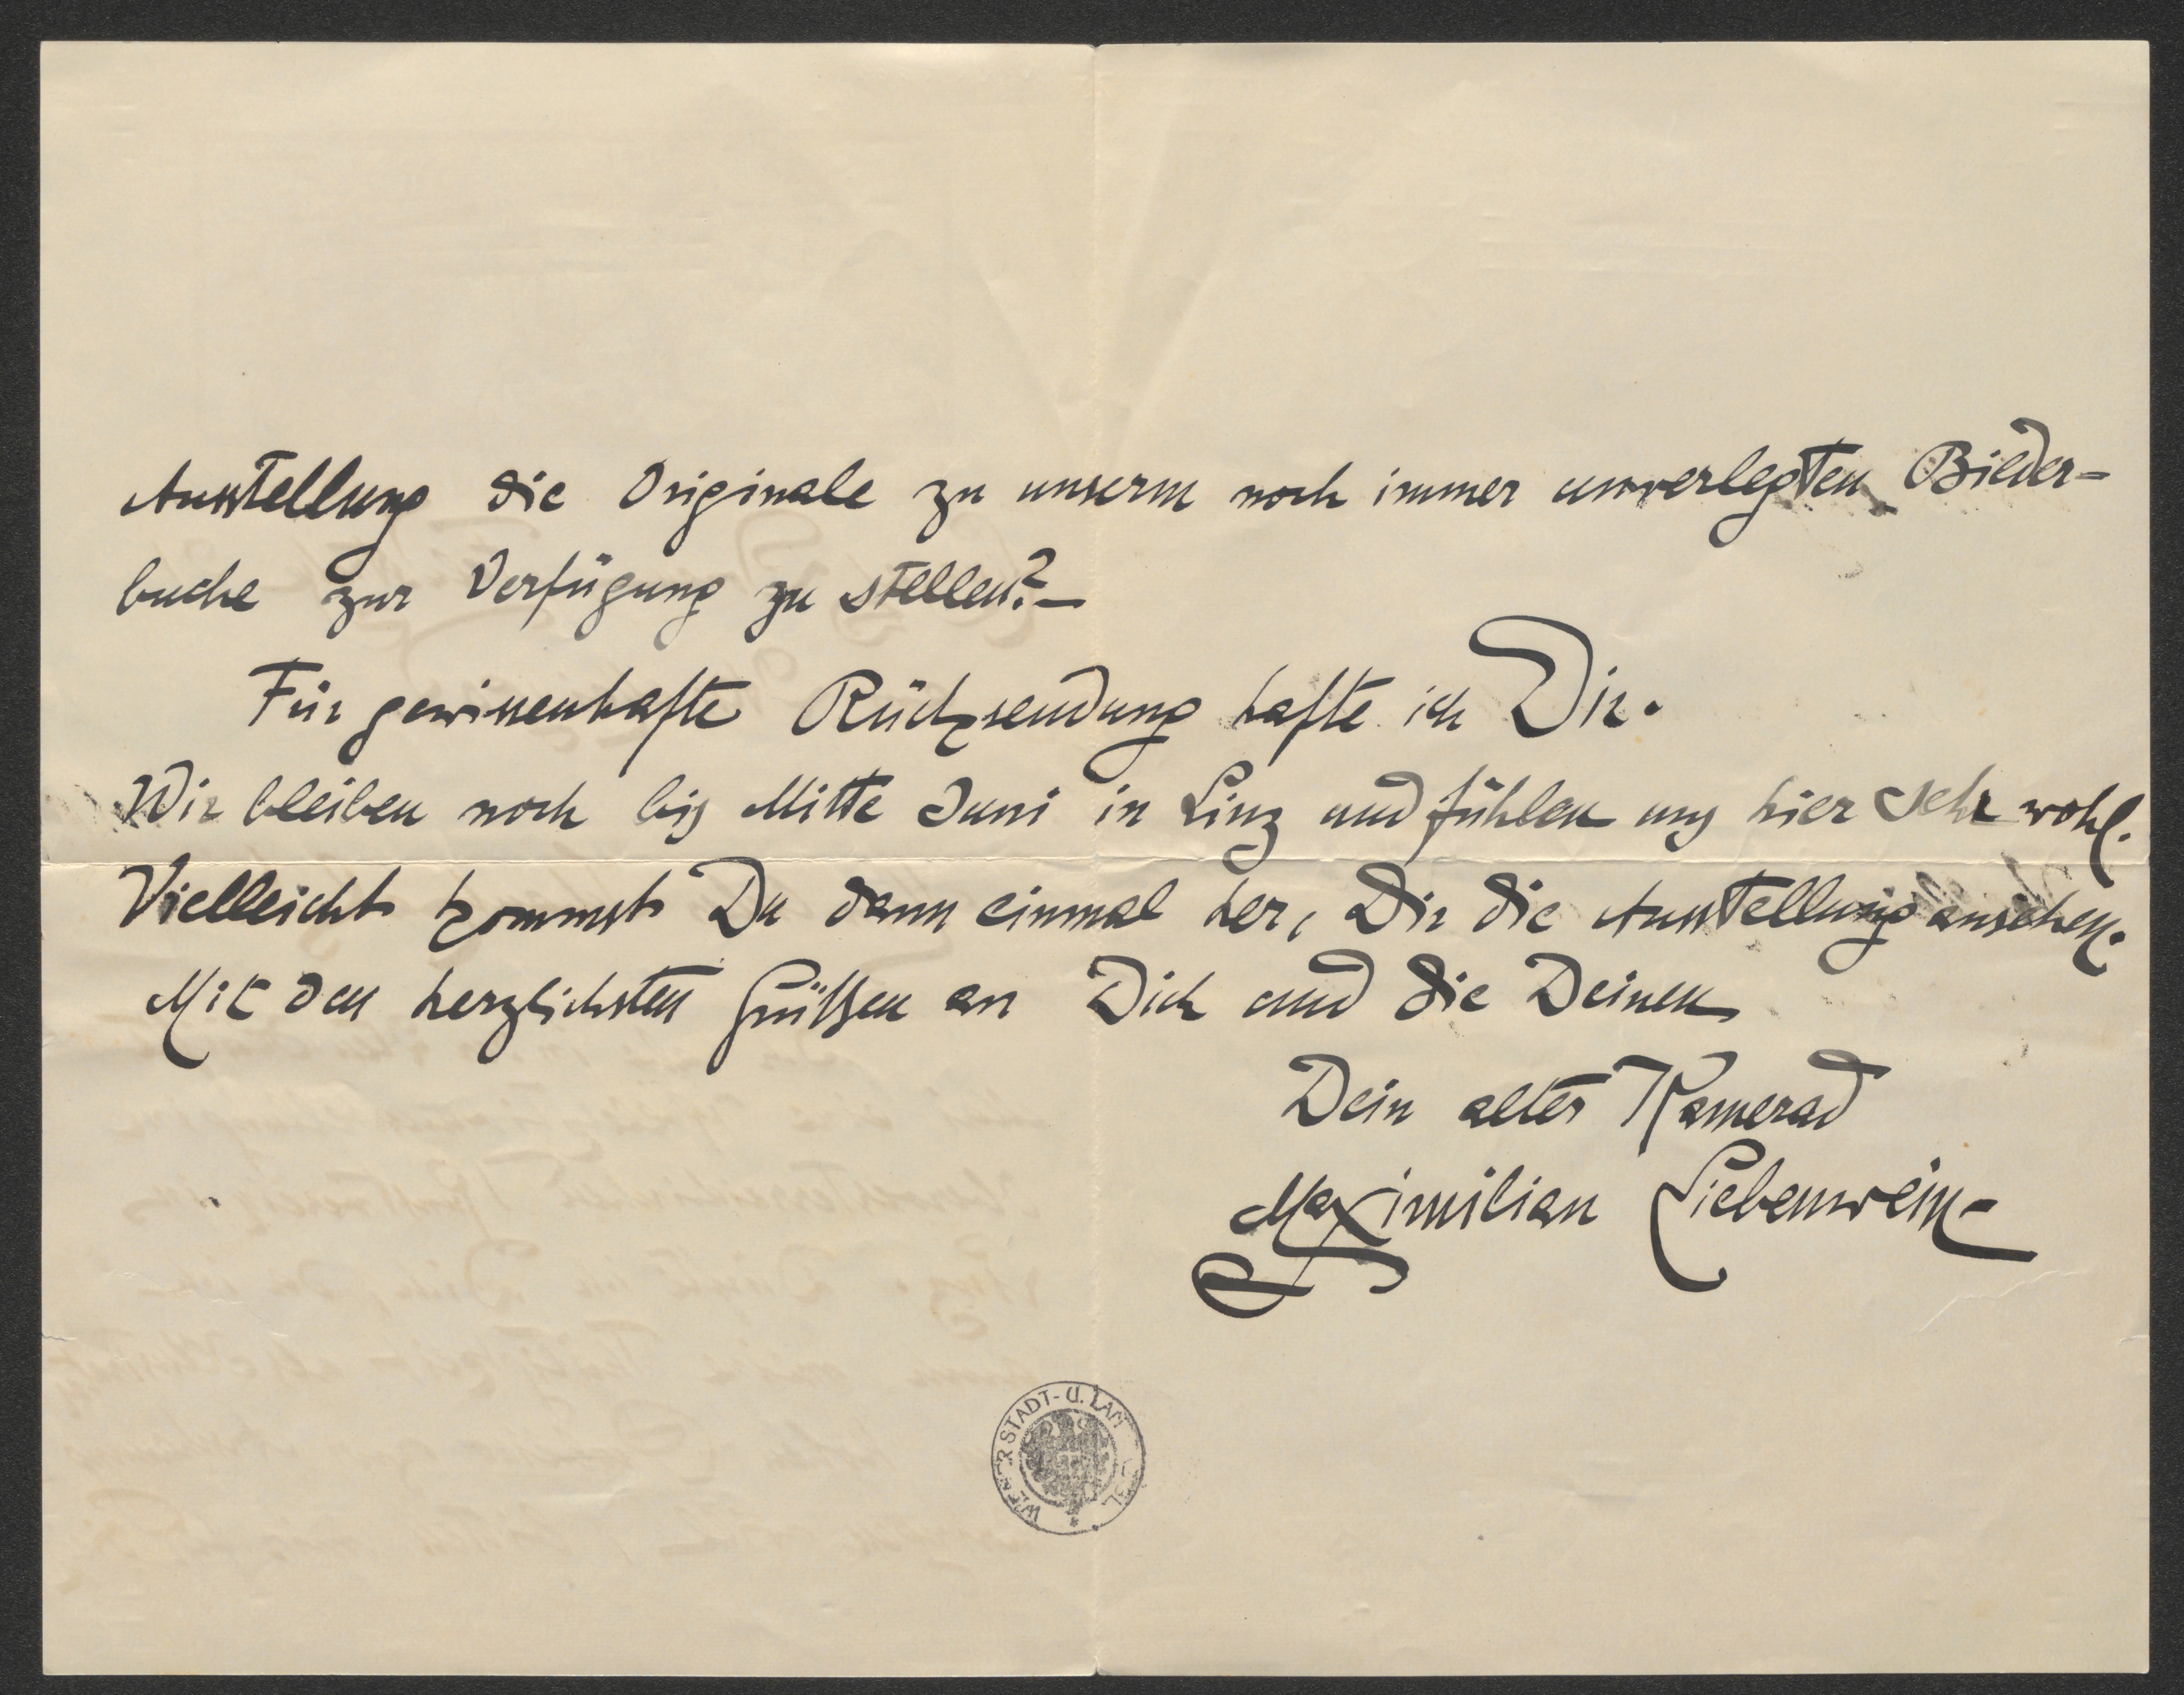 Ausstellung die Originale zu unserm noch immer unverlegten Bilder-
buche zur Verfügung zu stellen?—
Für gewissenhafte Rücksendung hafte ich Dir.
Wir bleiben noch bis Mitte Juni in Linz und fühlen uns hier sehr wohl.
Vielleicht kommst Du dann einmal her, Dir die Ausstellung ansehen.
Mit den herzlichsten Grüßen an Dich und die Deinen
Dein alter Kamerad
Maximilian Liebenwein-
WIENER STADT- U. LAN